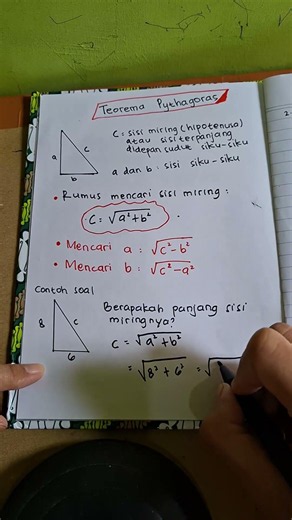 Teorema Pythagoras
a
c
b
C = sisi miring (hipotenusa)
atau sisi terpanjang
didepan sudut siku-siku
a dan b : sisi siku-siku
• Rumus mencari sisi miring :
C = √a² + b² .
• Mencari a : √c² - b²
• Mencari b : √c² - a²
Contoh soal
8
c
6
Berapakah panjang sisi
miringnya?
C = √a² + b²
= √8² + 6² = √
2